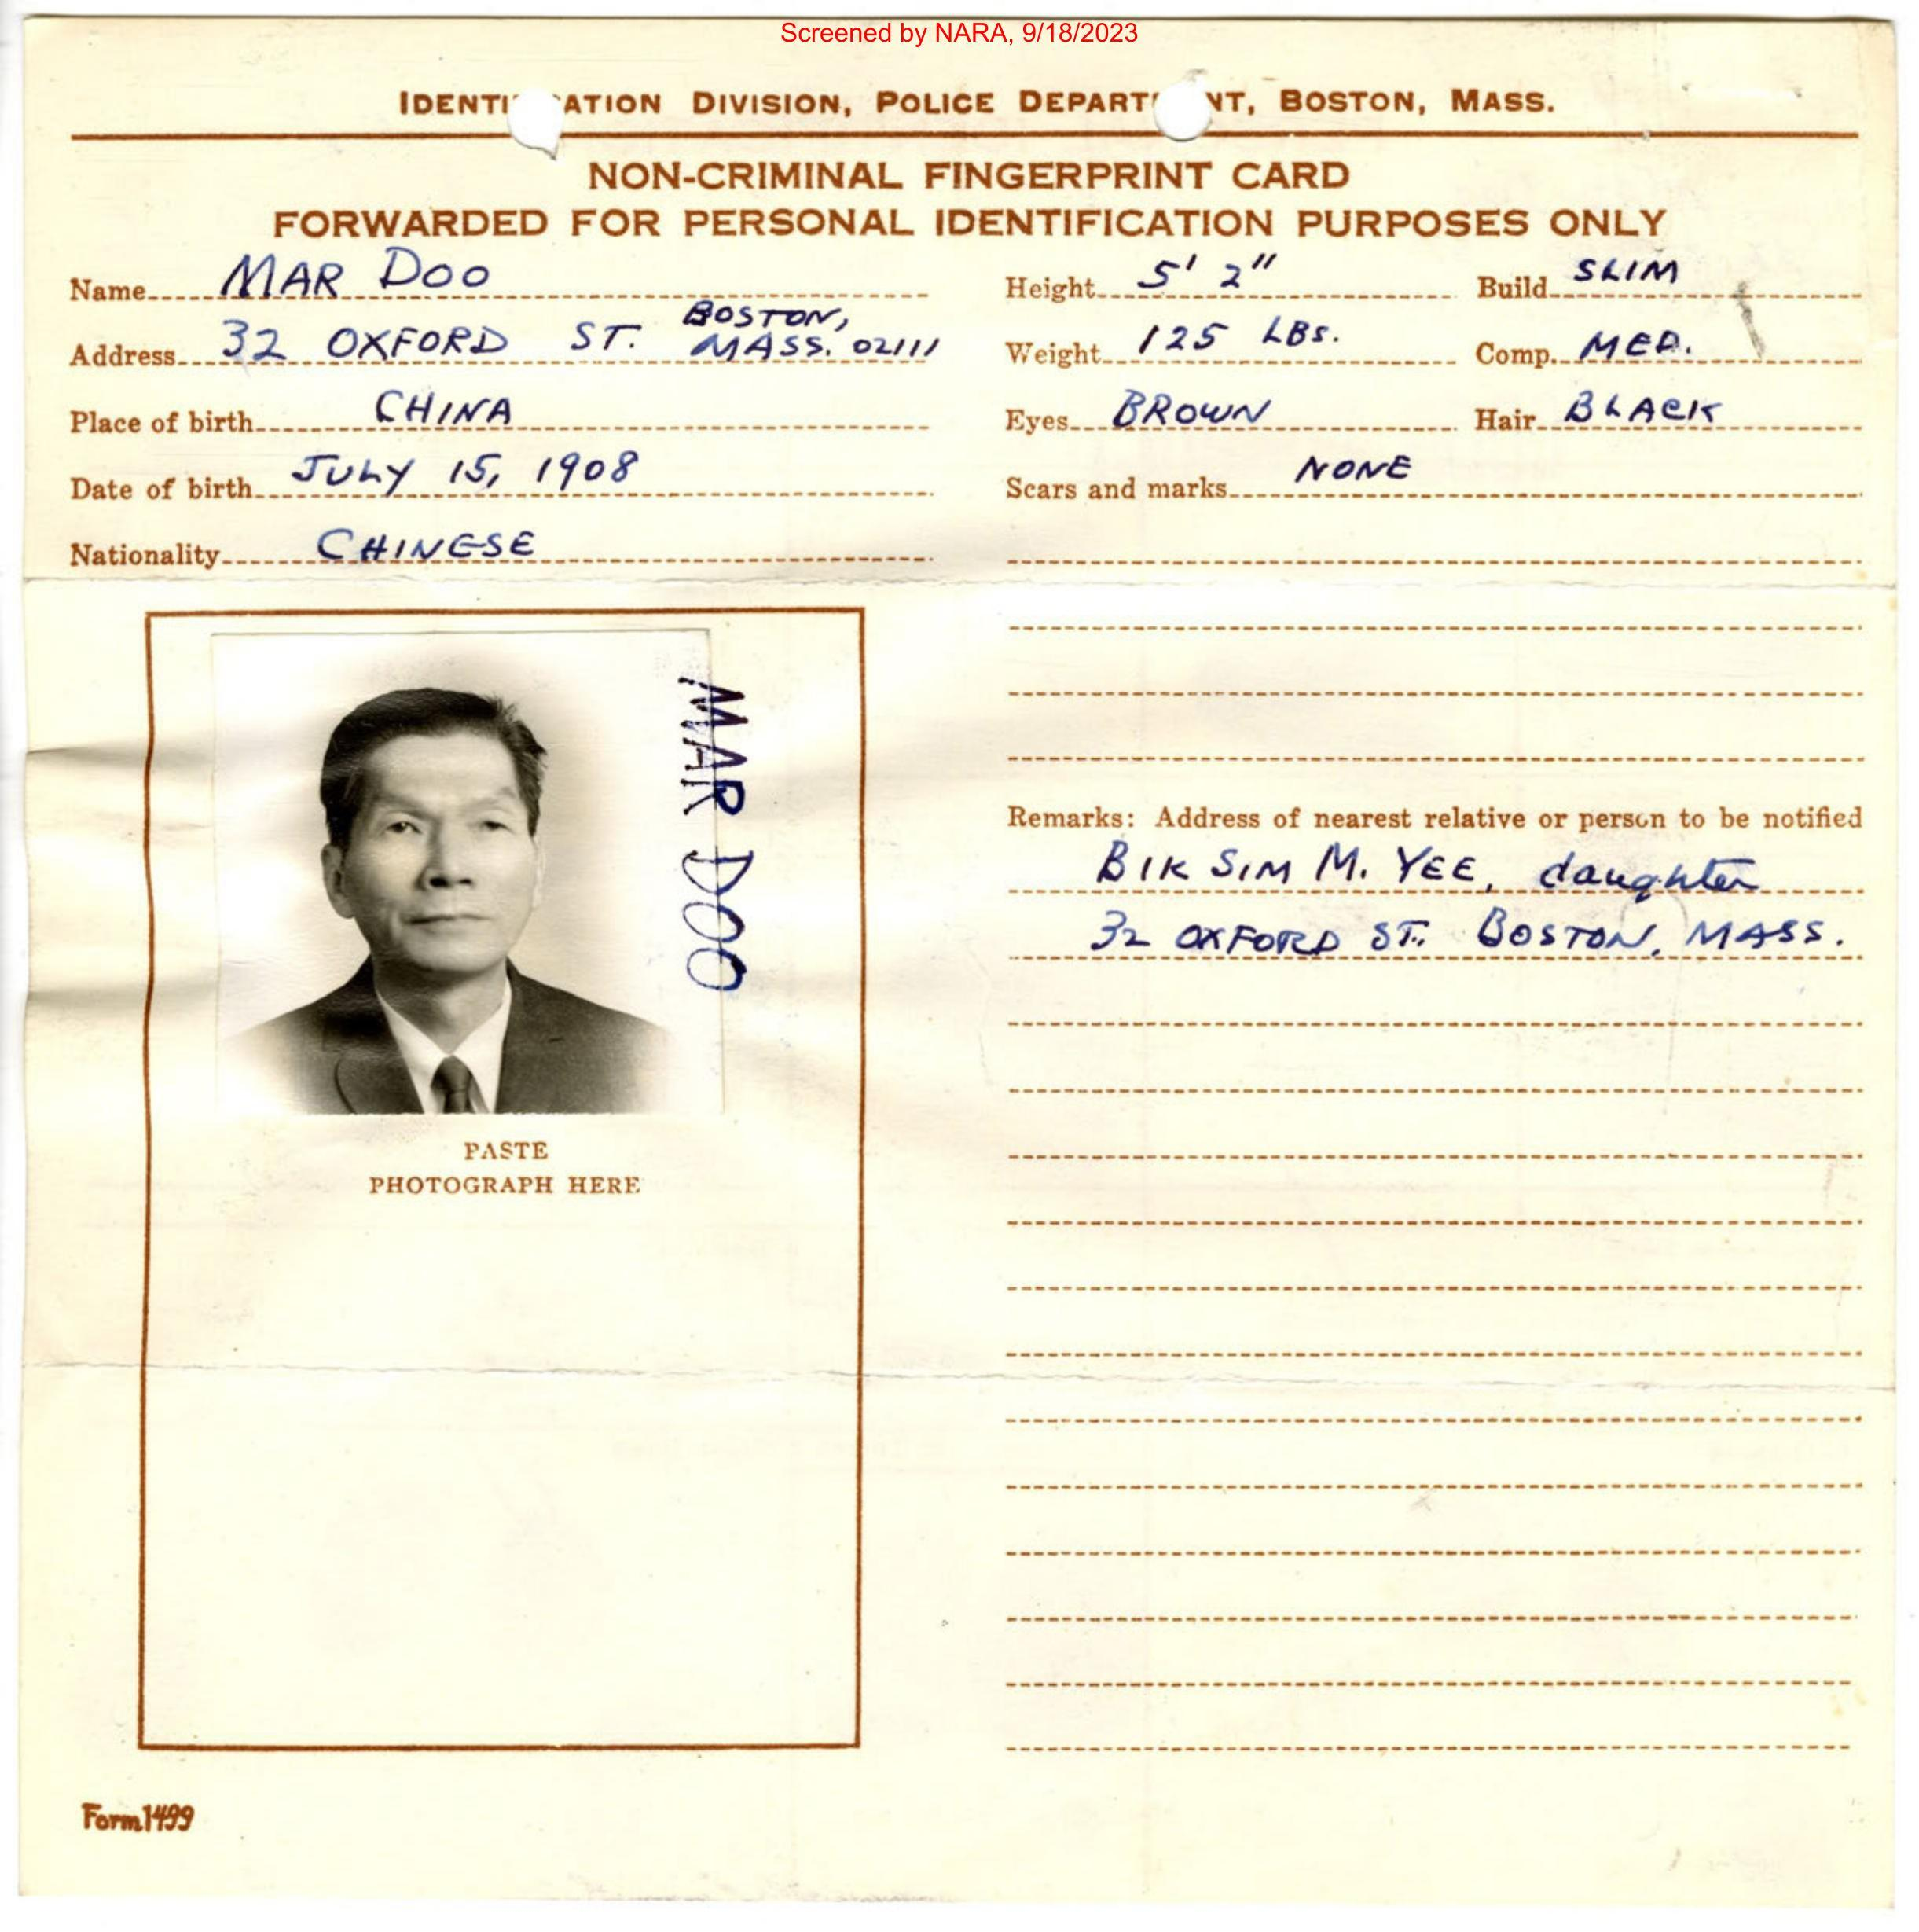 Screened by NARA, 9/18/2023
IDENTI ATION DIVISION, POLICE DEPART NT, BOSTON, MASS.
NON-CRIMINAL FINGERPRINT CARD
FORWARDED FOR PERSONAL IDENTIFICATION PURPOSES ONLY
Name MAR DOO
Address 32 OXFORD ST. BOSTON,
MASS. 02111
Place of birth CHINA
Date of birth JULY 15, 1908
Nationality CHINESE
Height 5' 2" Build SLIM
Weight 125 LBS. Comp. MED.
Eyes BROWN Hair BLACK
Scars and marks NONE
MAR DOO
PASTE
PHOTOGRAPH HERE
Remarks: Address of nearest relative or person to be notified
BIK SIM M. YEE, daughter
32 OXFORD ST. BOSTON, MASS.
Form 1499